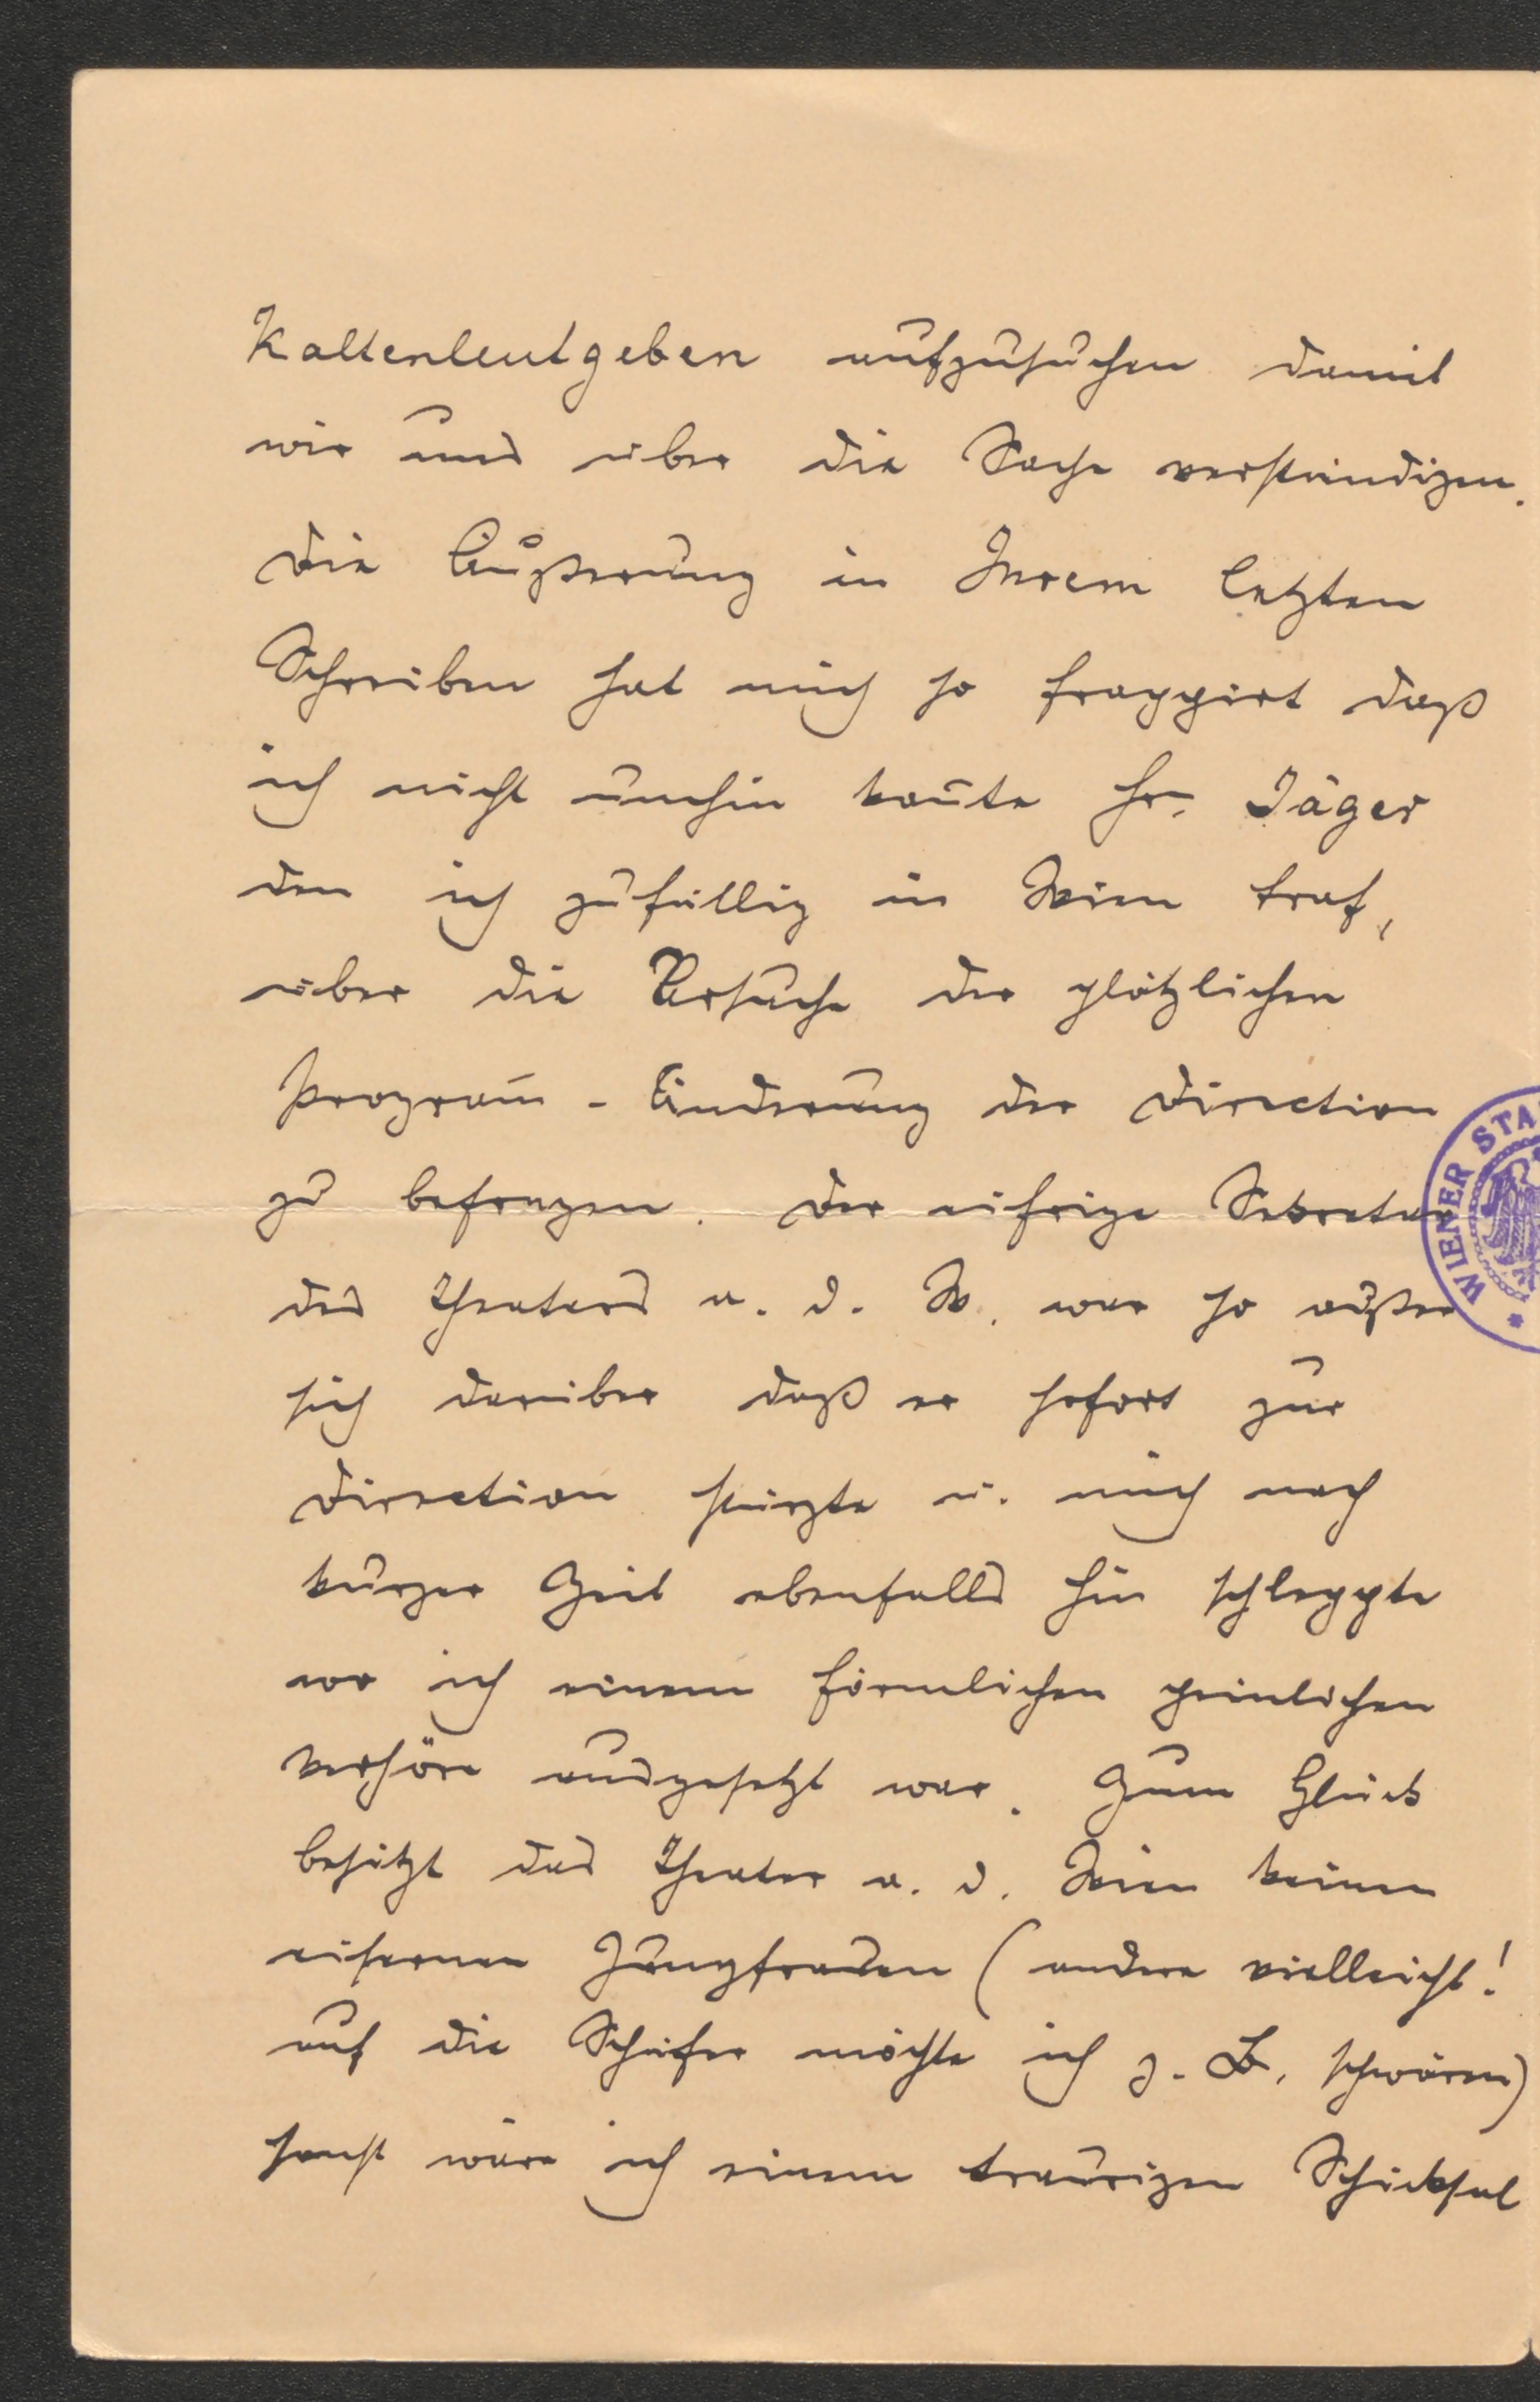 Kaltenleutgeben aufzusuchen damit
wir uns über die Sache verständigen.
Die Äußerung in Ihrem letzten
Schreiben hat mich so frappirt daß
ich nicht umhin kon̅te Hr. Jäger
den ich zufällig in Wien traf,
über die Ursache der plötzlichen
Program̅ - Änderung der Direction
zu befragen. Der eifrige Sekretär
des Theaters a. d. W. war so außer
sich darüber daß er sofort zur
Direction stürzte u. mich nach
kurzer Zeit ebenfalls hin schleppte
wo ich einem förmlichen peinlichen
Verhöre ausgesetzt war. Zum Glück
besitzt das Theater a. d. Wien keinen
eisernen Jungfrauen (andere vielleicht!
auf die Schäfer möchte ich z. B. schwören)
sonst wäre ich einem traurigen Schicksal
WIENER STA